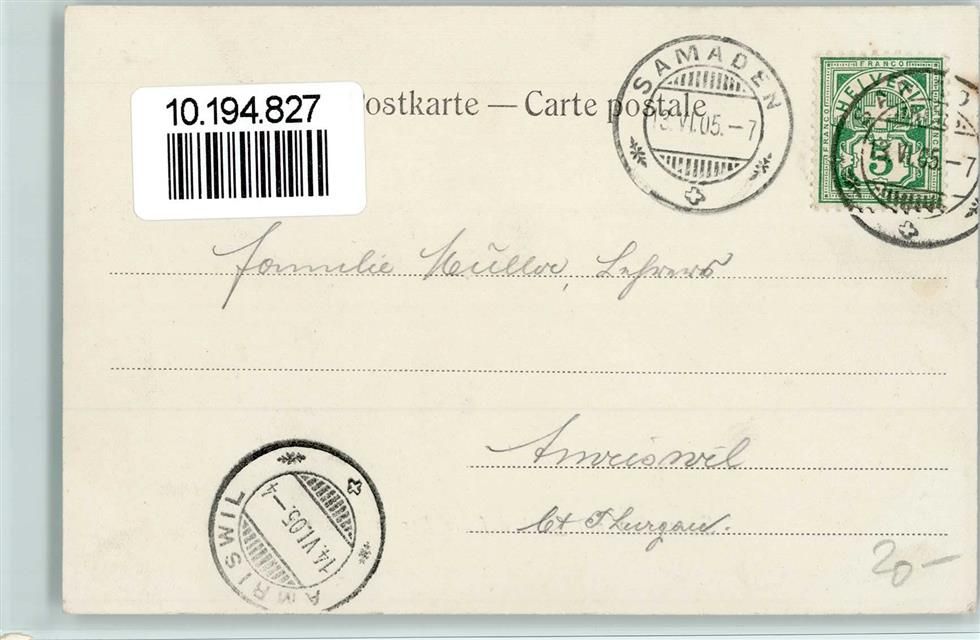 10.194.827
Postkarte — Carte postale
SAMADEN
13.VI.05.–7
FRANCO
HELVETIA
5
13.VI.05–7
Familie Müller, Lehrers
Amriswil
Ct Thurgau.
AMRISWIL
14.VI.05.–4
20–